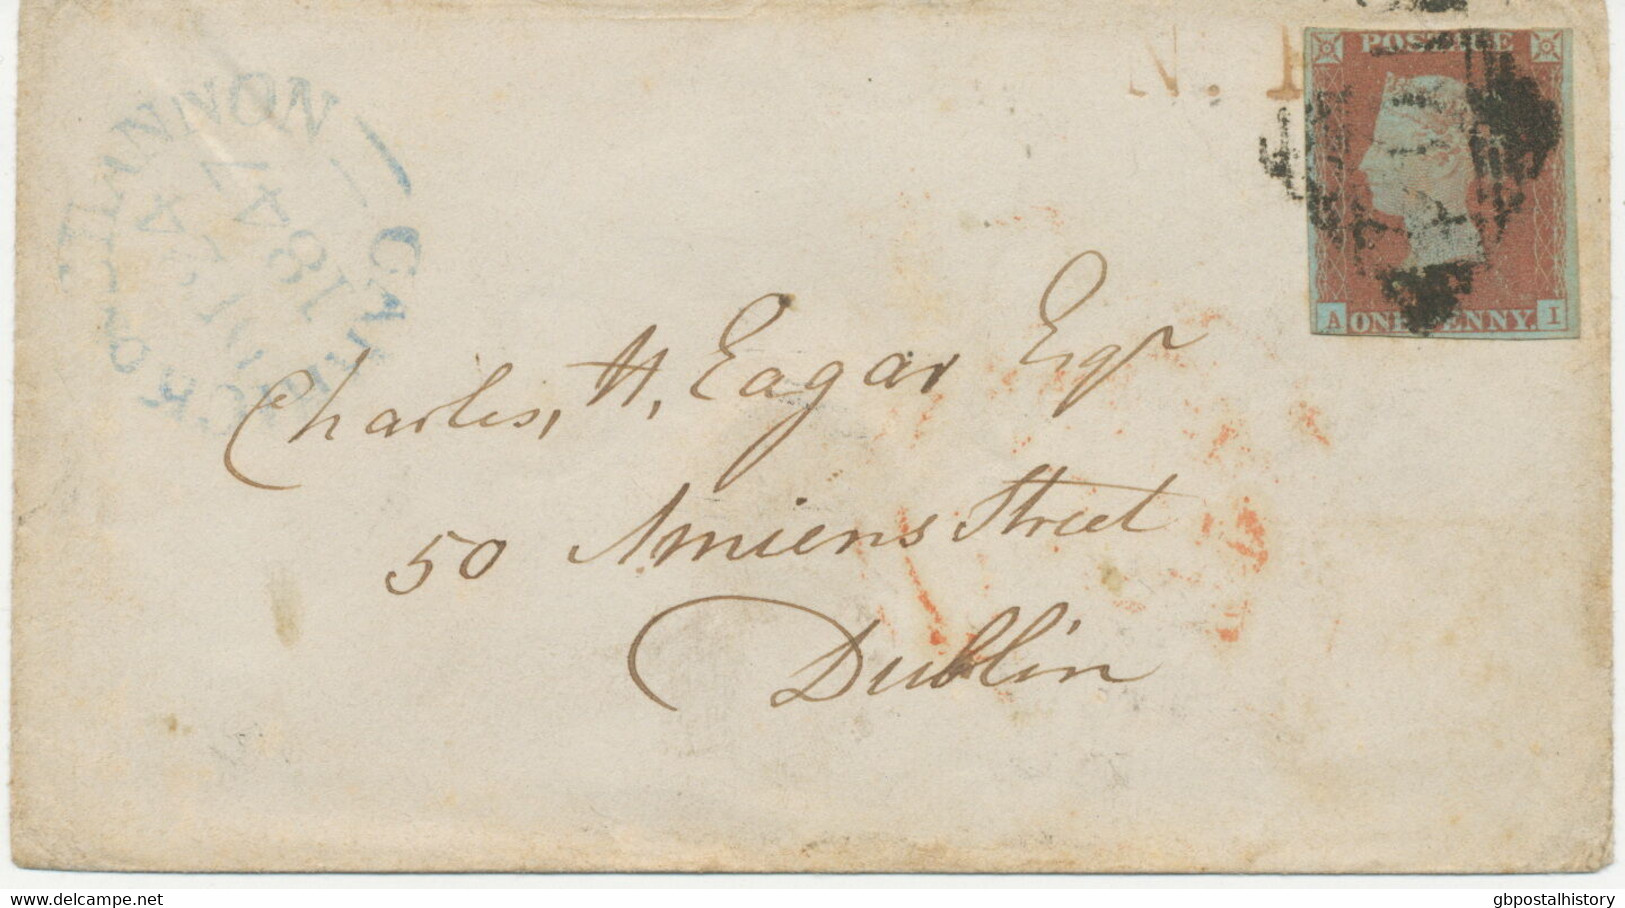 CARRICK ON SHANNON
1847
N.
POSTAGE
A ONE PENNY. I
Charles, H, Eagar Esqr
50 Amiens Street
Dublin
www.delcampe.net
gbpostalhistory